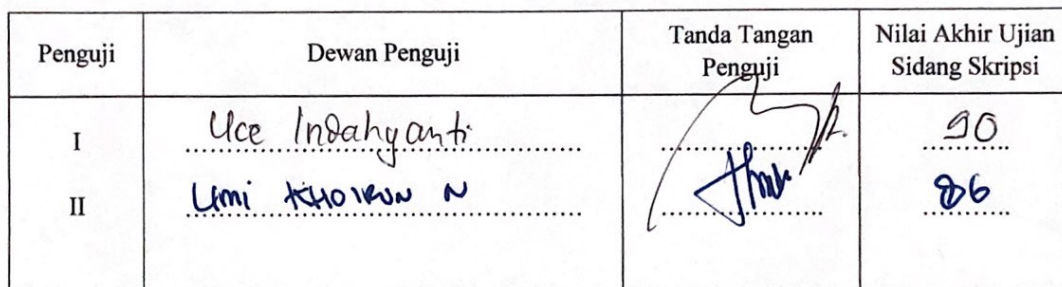 Penguji Dewan Penguji Tanda Tangan Penguji Nilai Akhir Ujian Sidang Skripsi
I Uce Indahyanti 90
II Umi KHOIRUN N 86